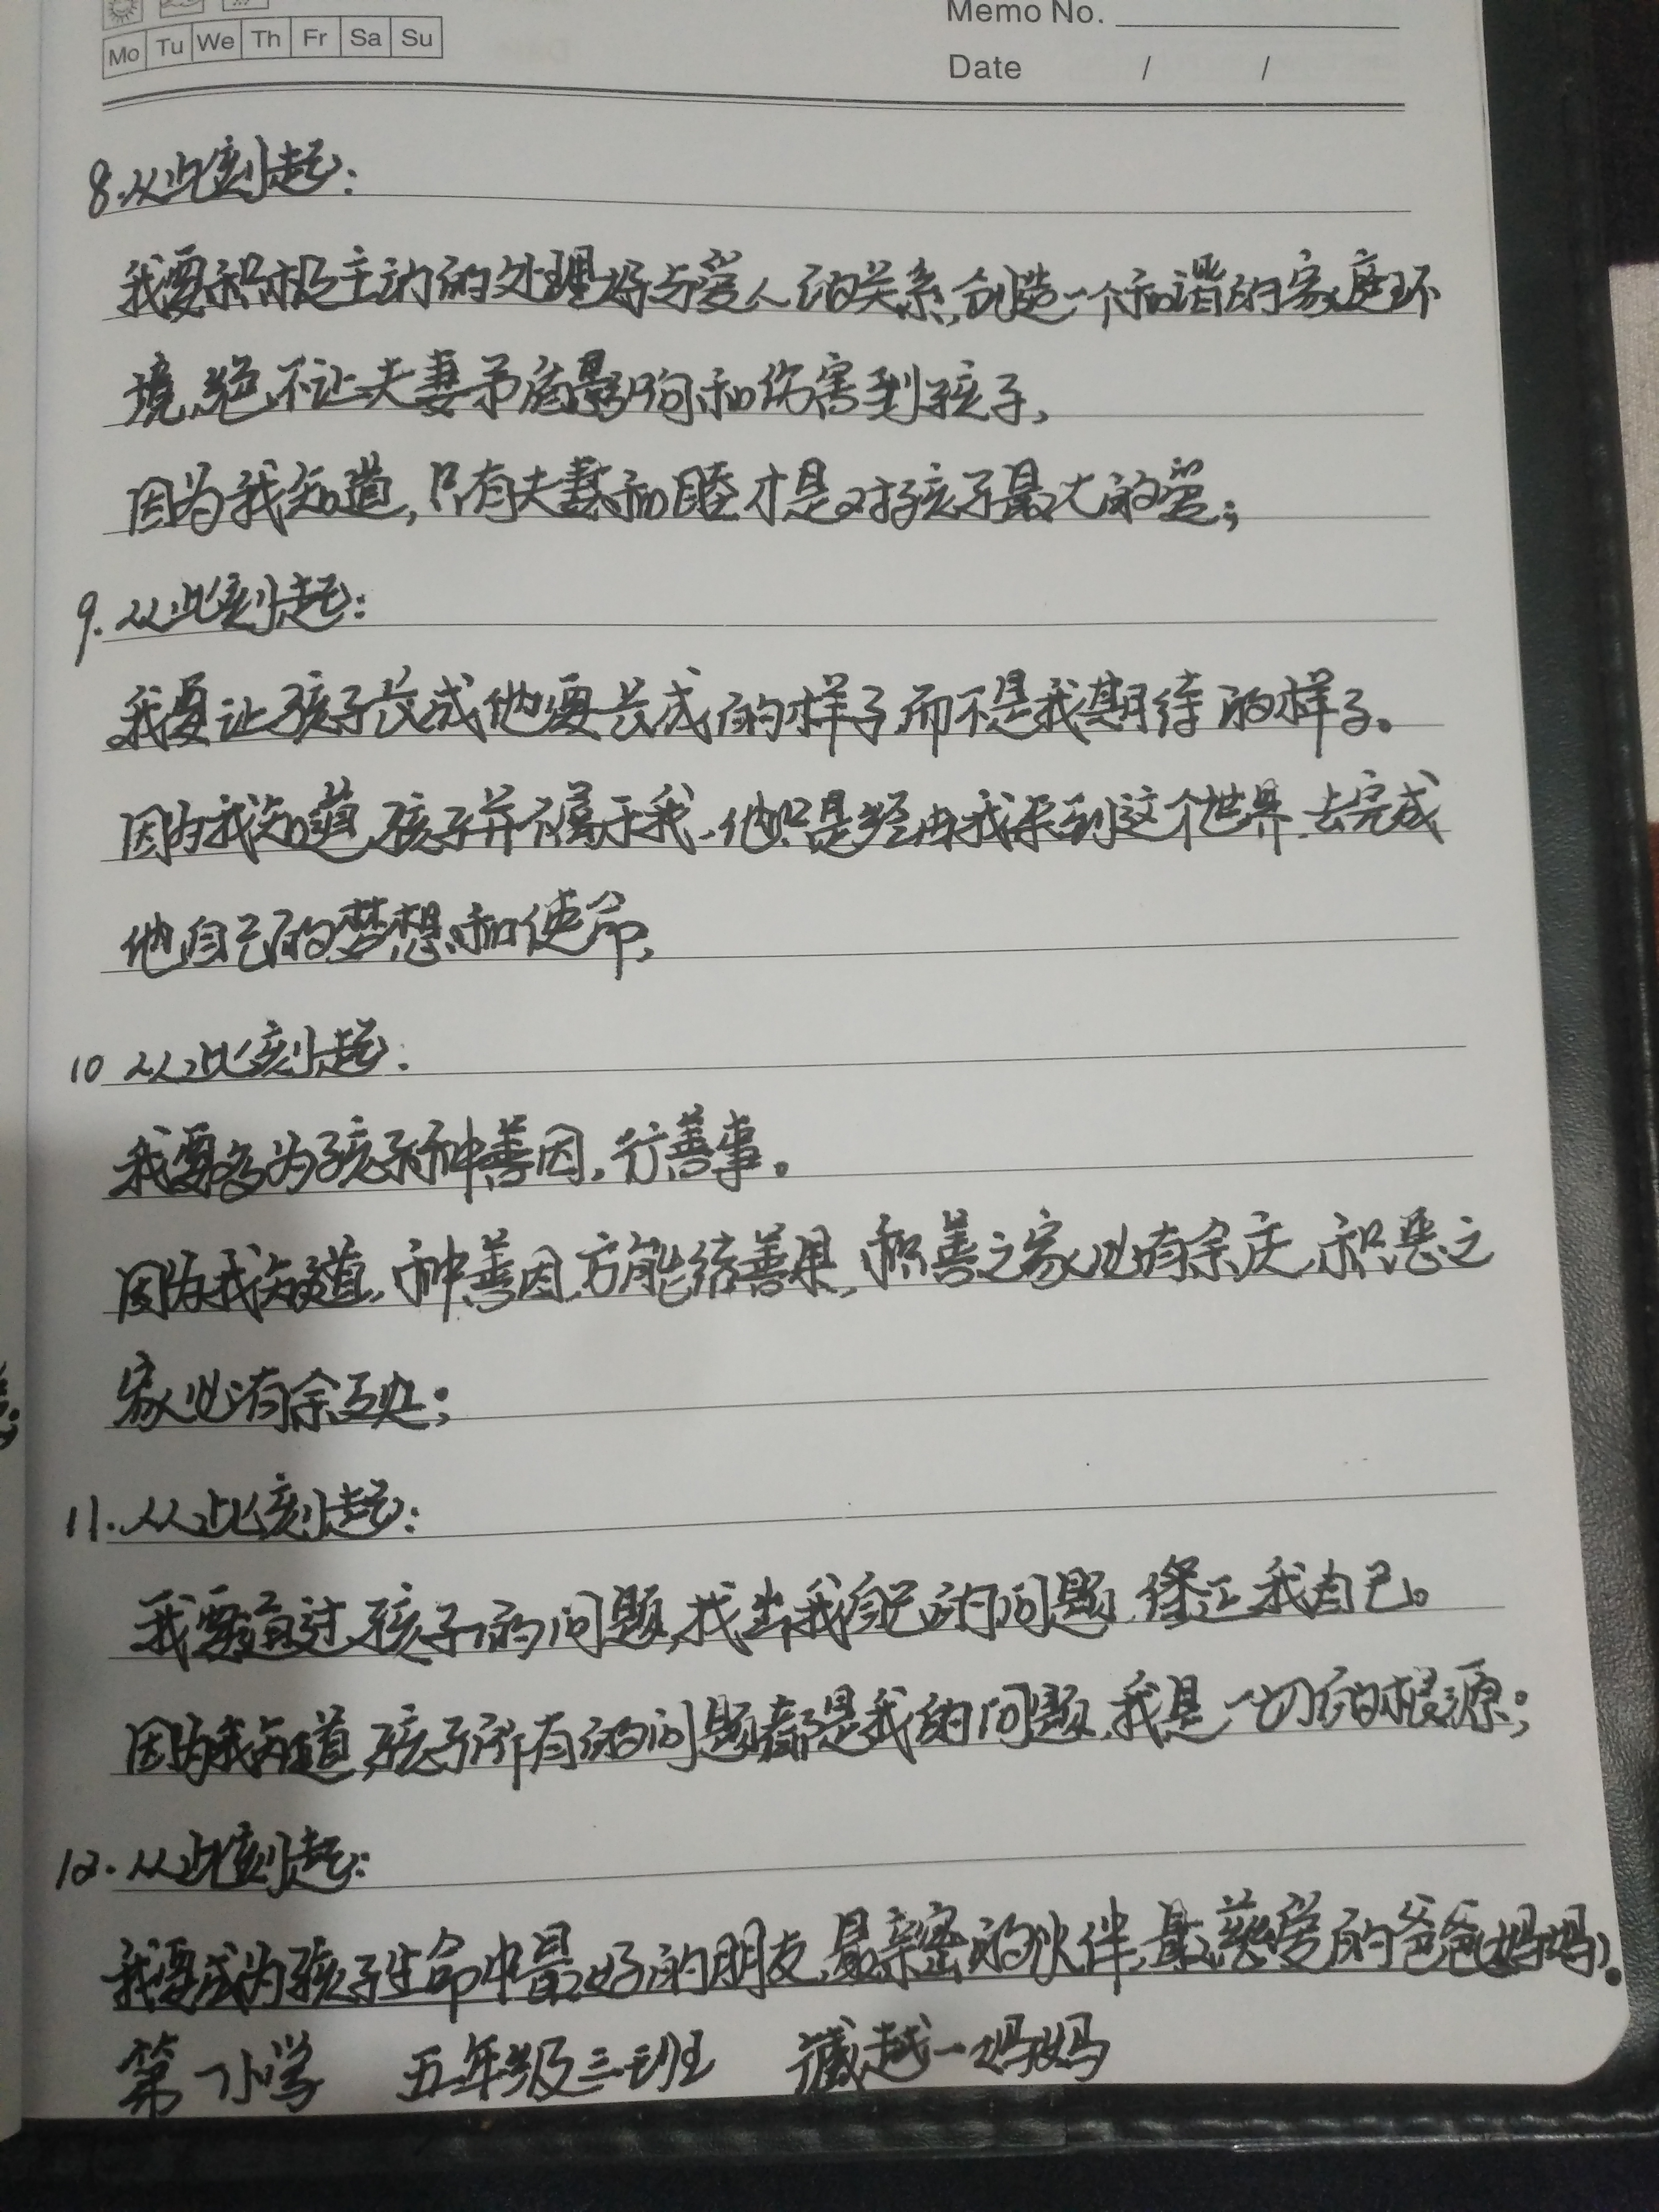 Memo No.
Mo Tu We Th Fr Sa Su
Date / /
8.从此刻起:
我要积极主动的处理好与爱人的关系,创造一个和谐的家庭环
境,绝不让夫妻矛盾影响和伤害到孩子,
因为我知道,只有夫妻和睦才是对孩子最大的爱;
9.从此刻起:
我要让孩子长成他要长成的样子,而不是我期待的样子。
因为我知道,孩子并不属于我,他只是经由我来到这个世界,去完成
他自己的梦想和使命,
10 从此刻起:
我要多为孩子种善因,行善事。
因为我知道,种善因,方能结善果,积善之家必有余庆,积恶之
家必有余殃;
11.从此刻起:
我要通过孩子的问题,找出我自己的问题,修正我自己。
因为我知道,孩子所有的问题都是我的问题,我是一切的根源;
12.从此刻起:
我要成为孩子生命中最好的朋友,最亲密的伙伴,最慈爱的爸爸妈妈。
第一小学 五年级三班 越一妈妈